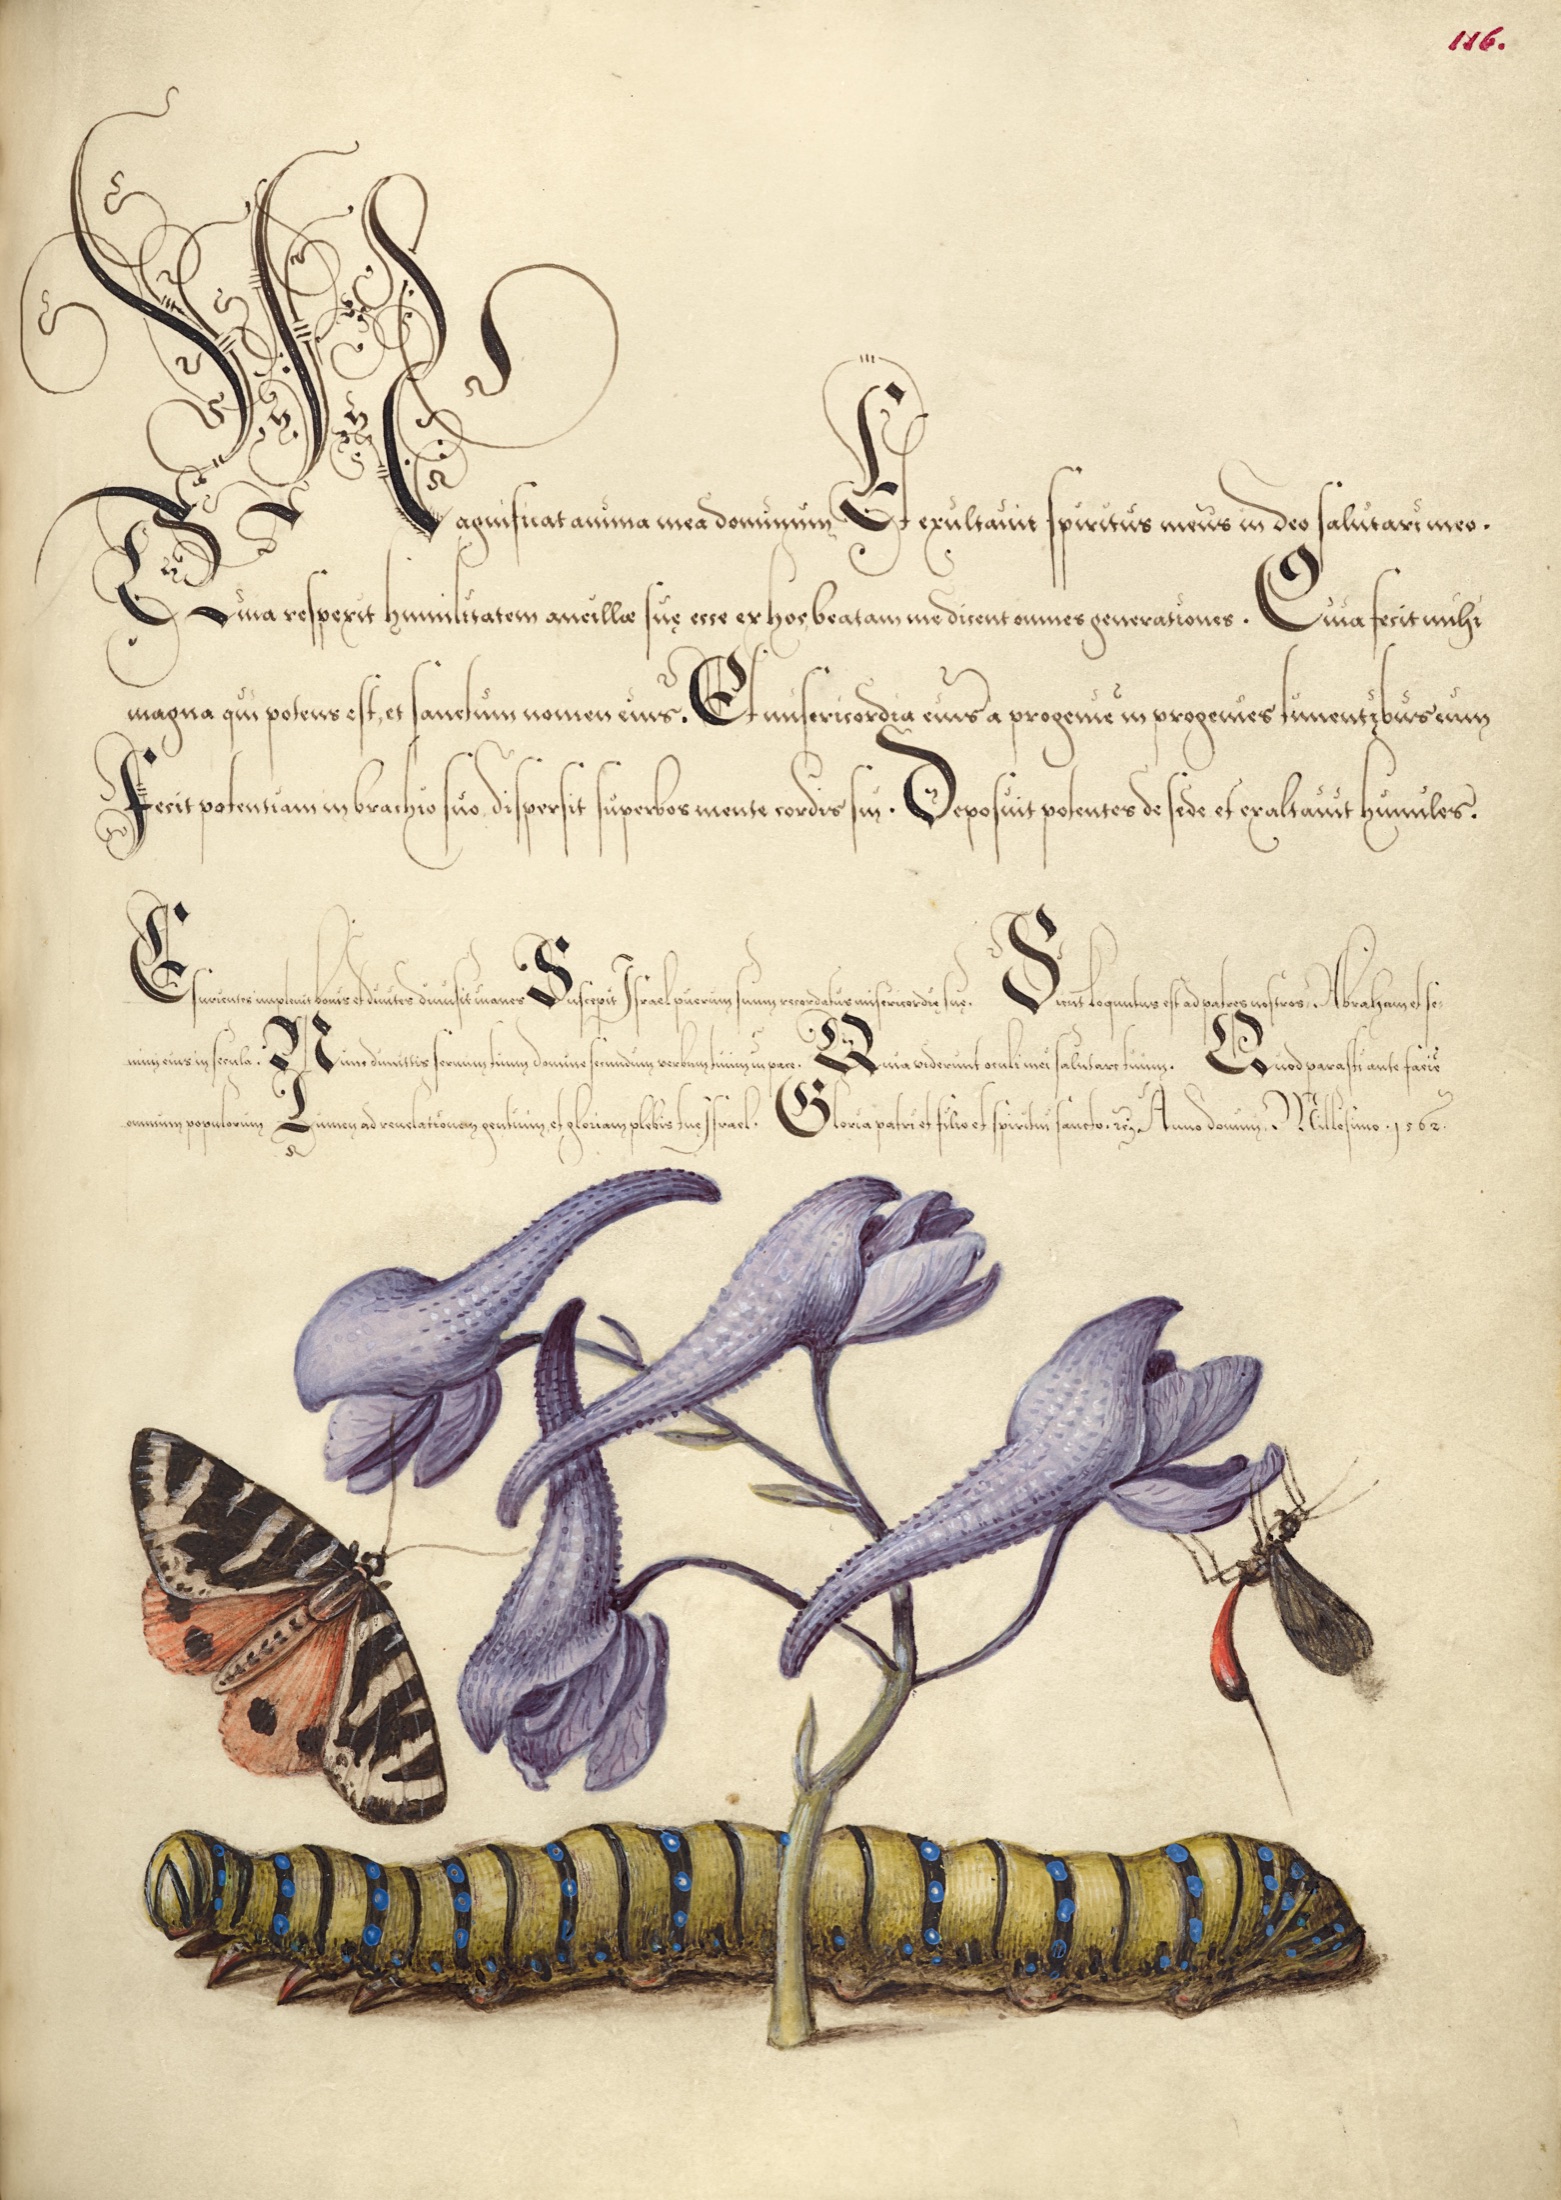 116.
Magnificat anima mea dominum Et exultavit spiritus meus in deo salutari meo.
Quia respexit humilitatem ancillæ suę ecce ex hoc beatam me dicent omnes generationes. Quia fecit mihi
magna qui potens est, et sanctum nomen eius. Et misericordia eius a progenie in progenies timentibus eum
Fecit potentiam in brachio suo, dispersit superbos mente cordis sui. Deposuit potentes de sede et exaltavit humiles.
Esurientes implevit bonis et divites dimisit inanes Suscepit Israel puerum suum recordatus misericordię suę. Sicut loquutus est ad patres nostros. Abraham et se-
mini eius in secula. Nunc dimittis servum tuum domine secundum verbum tuum in pace. Quia viderunt oculi mei salutare tuum. Quod parasti ante facie
omnium populorum Lumen ad revelationem gentium, et gloriam plebis tuę Israel. Gloria patri et filio et spiritui sancto. Anno domini Millesimo. 1562.